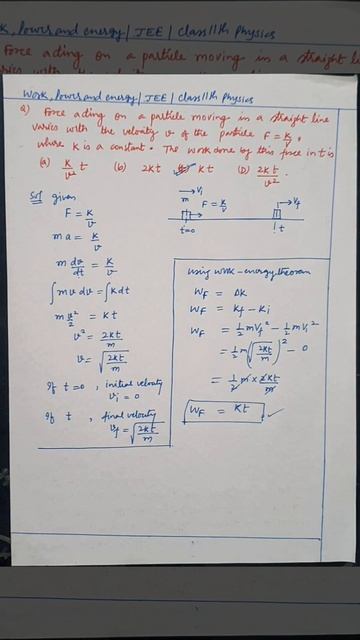 k, Power and energy | JEE | Class 11th Physics
Force acting on a particle moving in a straight l
Work, Power and energy | JEE | Class 11th Physics
Q) Force acting on a particle moving in a straight line
varies with the velocity v of the particle F = K/v,
where K is a constant. The work done by this force in t is
(a) K/v² t (b) 2Kt (c) Kt (D) 2Kt/v²
Sol given
F = K/v
ma = K/v
m dv/dt = K/v
∫mv dv = ∫K dt
m v²/2 = Kt
v² = 2Kt/m
v = √(2Kt/m)
If t = 0, initial velocity
vi = 0
If t, final velocity
vf = √(2Kt/m)
vi
m F = K/v
vf
t=0 t
Using work-energy theorem
WF = ΔK
WF = Kf - Ki
WF = 1/2 m vf² - 1/2 m vi²
= 1/2 m (√(2Kt/m))² - 0
= 1/2 m × 2Kt/m
WF = Kt